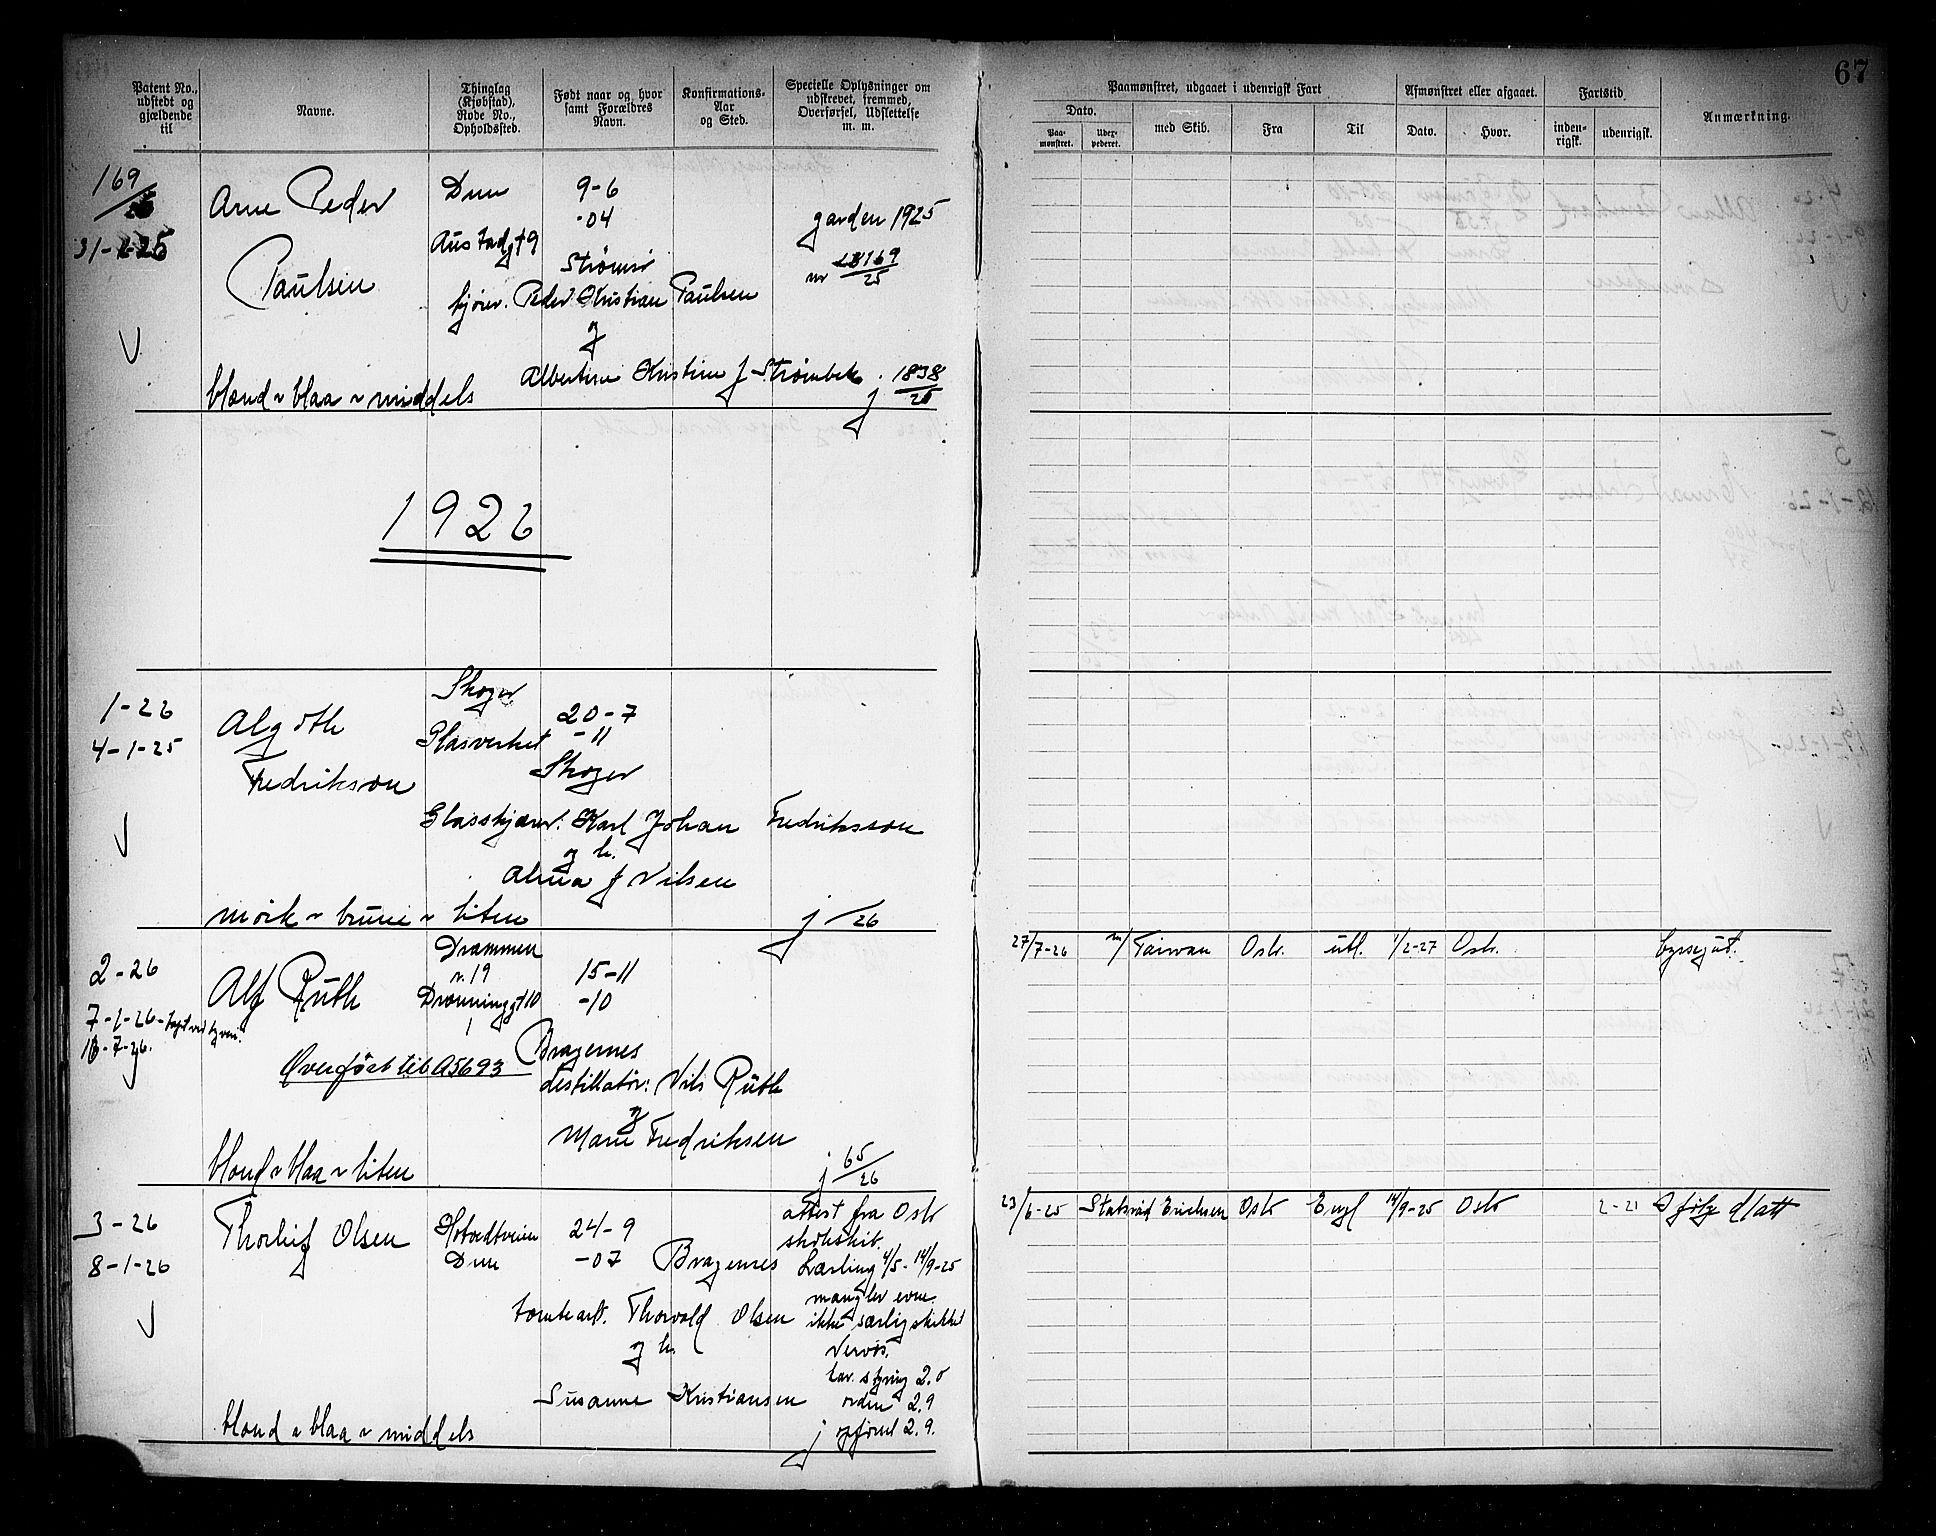 67
Patent No., udstedt og gjældende til
Navne.
Thinglag (Kjøbstad), Rode No., Opholdssted.
Født naar og hvor samt Forældres Navn.
Konfirmations-Aar og Sted.
Specielle Oplysninger om udskrevet, fremmed, Overførsel, Udslettelse m. m.
Paamønstret, udgaaet i udenrigsk Fart
Dato.
Paa-mønstret.
med Skib.
Fra
Til
Afmønstret eller afgaaet.
Dato.
Hvor.
Fartstid
inden-rigsk.
udenrigsk.
Anmærkning.
169
31-
25
Arne Peder
Paulsen
Drm
9-6
-04
Strømsø
garden 1925
nr 169/25
kjører. Peder Kristian Paulsen
og
Albertine Kristine f Strømbek
j 1838
blond ~ blaa ~ middels
1926
1-26
4-1-25
Algoth
Fredriksson
Skoger
Glasverket
20-7
-11
Skoger
Karl Johan Fredriksson
og h.
Alma f Nilsen
mørk ~ brune ~ liten
j /26
2-26
7-1-26
-7-26.
Alf Ruth
Drammen
r. 19
Dronningsgt 10
15-11
-10
Bragernes
Overført til A5693
destillatør: Nils Ruth
og
Marie Fredriksen
blond ~ blaa ~ liten
j 65/26
27/7-26 m/ Taiwan Oslo. utl. 1/2-27 Oslo. byssegut.
3-26
8-1-26
Thorleif Olsen
Drm
24-9
-07 Bragernes
attest fra Oslo
skoleskib.
Lærling 4/5-14/9-25
mangler evne.
ikke særlig skikket
Nervøs.
kar. styring 2.0
orden 2.9
j opførsel 2.9.
tomtearb. Thorvald Olsen
og h.
Susanne Kristiansen
blond ~ blaa ~ middels
23/6-25 Statsråd Erichsen Oslo Engl 14/9-25 Oslo 2-21 Ifølge Att